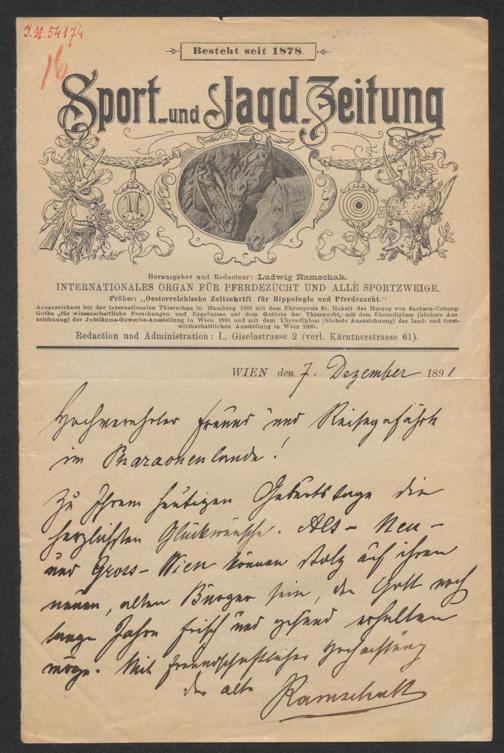 J.N. 54174
16
Besteht seit 1878.
Sport- und Jagd-Zeitung
Herausgeber und Redacteur: Ludwig Ramschak.
INTERNATIONALES ORGAN FÜR PFERDEZUCHT UND ALLE SPORTZWEIGE.
Früher: „Oesterreichische Zeitschrift für Hippologie und Pferdezucht."
Ausgezeichnet bei der internationalen Thierschau in Hamburg 1883 mit dem Ehrenpreis Sr. Hoheit des Herzog von Sachsen-Coburg-
Gotha „für wissenschaftliche Forschungen und Ergebnisse auf dem Gebiete der Thierzucht, mit dem Ehrendiplom (höchste Aus
zeichnung) der Jubiläums-Gewerbe-Ausstellung in Wien 1888 und mit dem Ehrendiplom (höchste Auszeichnung) der land- und forst-
wirthschaftlichen Ausstellung in Wien 1890.
Redaction und Administration: I., Giselastrasse 2 (verl. Kärntnerstrasse 61).
WIEN den 7. Dezember 1891
Hochverehrter Freund und Reisegefährte
im Pharaonenlande!
Zu Ihrem heutigen Geburtstage die
herzlichsten Glückwünsche. Alt- Neu-
und Gross-Wien können stolz auf ihren
neuen, alten Bürger sein, den Gott noch
lange Jahre frisch und gesund erhalten
möge. Mit freundschaftlicher Hochachtung
der alte
Ramschak